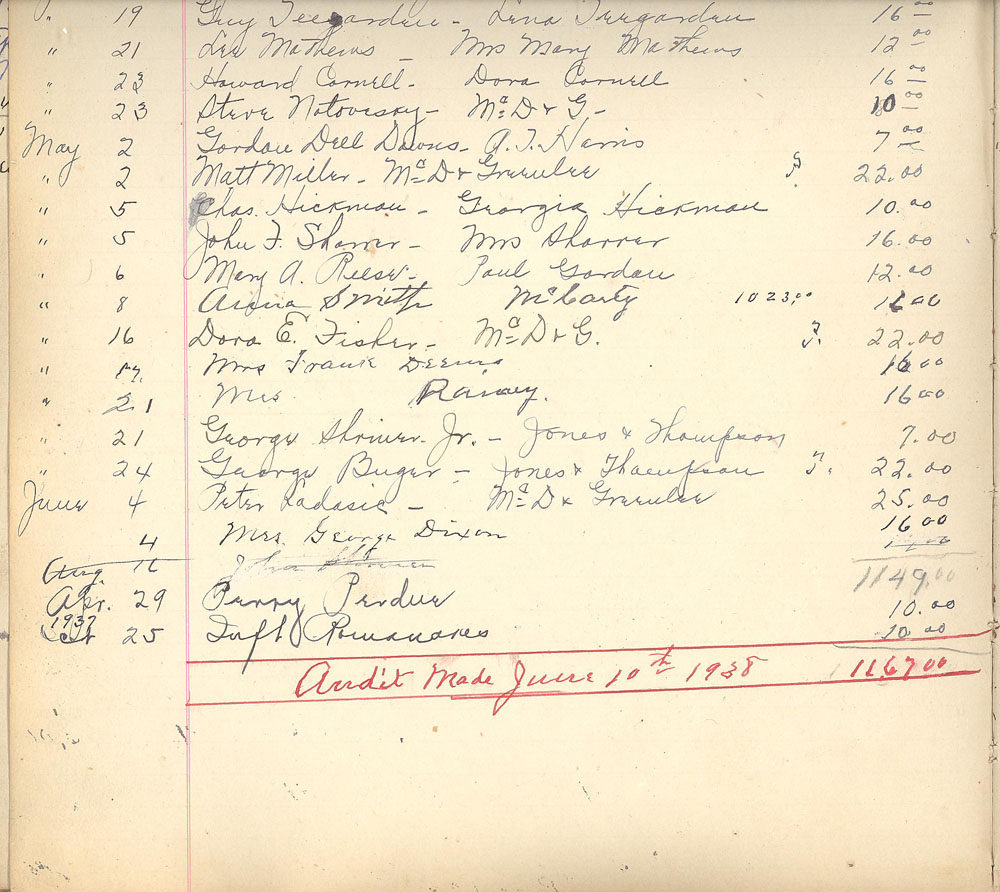 " 19 Guy Teegarden - Lena Teegarden 16 00
" 21 Lee Mathews - Mrs Mary Mathews 12 00
" 23 Howard Cornell - Dora Cornell 16 00
" 23 Steve Notovesky - McD & G - 10 00
May 2 Gordon Dell Downs - A.T. Harris 7 00
" 2 Matt Miller - McD & Greenlee F. 22.00
" 5 Chas. Hickman - Georgia Hickman 10.00
" 5 John F. Sharrer - Mrs Sharrer 16.00
" 6 Mary A. Reese - Paul Gordon 12.00
" 8 Anna Smith McCarty 1023.00 16 00
" 16 Dora E. Fisher - McD & G. F. 22.00
" 17. Mrs Frank Deems 16 00
" 21 Mrs Rainey. 16 00
" 21 George Shriver Jr. - Jones & Thompson 7.00
" 24 George Buger - Jones & Thompson F. 22.00
June 4 Peter Ladasic - McD & Greenlee 25.00
4 Mrs. George Dixon 16 00
Aug. 16 John 1149.00
Apr. 29 Perry Perdue 10.00
1937
25 Taft Romanares 10.00
Audit Made June 10th 1938 1167 00